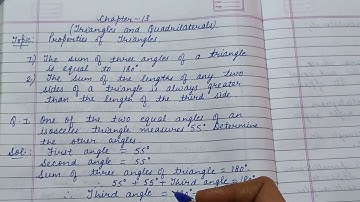 Chapter-13
(Triangles and Quadrilaterals)
Topic: Properties of Triangles
1) The sum of three angles of a triangle
is equal to 180°.
2) The sum of the lengths of any two
sides of a triangle is always greater
than the length of the third side
Q.1. One of the two equal angles of an
isosceles triangle measures 55°. Determine
the other angles
Sol: First angle = 55°
Second angle = 55°
Sum of three angles of triangle = 180°
55° + 55° + Third angle = 180°
∴ Third angle =